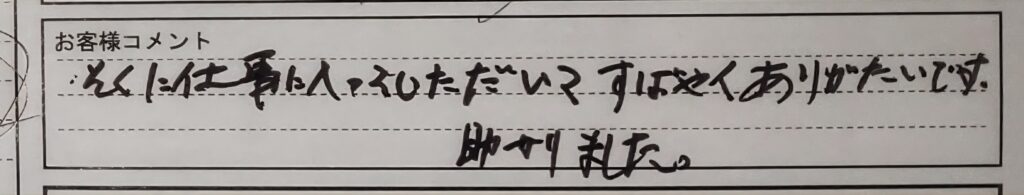 お客様コメント
そくに仕事に入ってしただいて すばやくありがたいです.
助かりました。